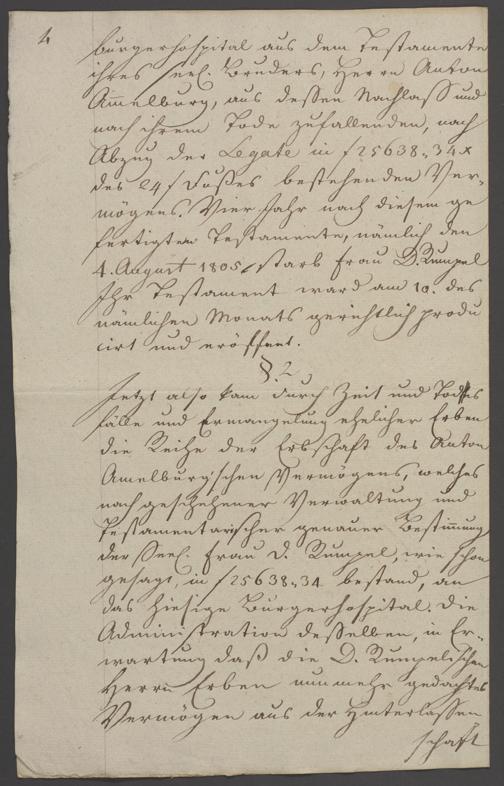 4
Burgerhospital aus dem Testamente
ihres seel. Bruders, Herrn Anton
Amelburg, aus dessen Nachlass und
nach ihrem Tode zufallenden, nach
Abzug der Legate in f 25638„34x
des 24 f Fußes bestehenden Ver-
mögens. Vier Jahr nach diesem ge
fertigten Testamente, nämlich den
4. August 1805, starb Frau D. Rumpel
Ihr Testament ward am 10. des
nämlichen Monats gerichtlich produ
cirt und eröffnet.
§. 2
Jetzt also kam durch Zeit und Todtes
fälle und Ermangelung ehelicher Erben
die Reihe der Erbschaft des Anton
Amelburg'schen Vermögens, welches
nach geschehener Verwaltung und
Testamentarischer genauer Bestimmung
der Seel. Frau D. Rumpel, wie schon
gesagt, in f 25638„34 bestand, an
das hiesige Burgerhospital. Die
Administration desselben, in Er-
wartung daß die D. Rumpelischen
Herrn Erben nunmehr gedachtes
Vermögen aus der Hinterlassen
schaft